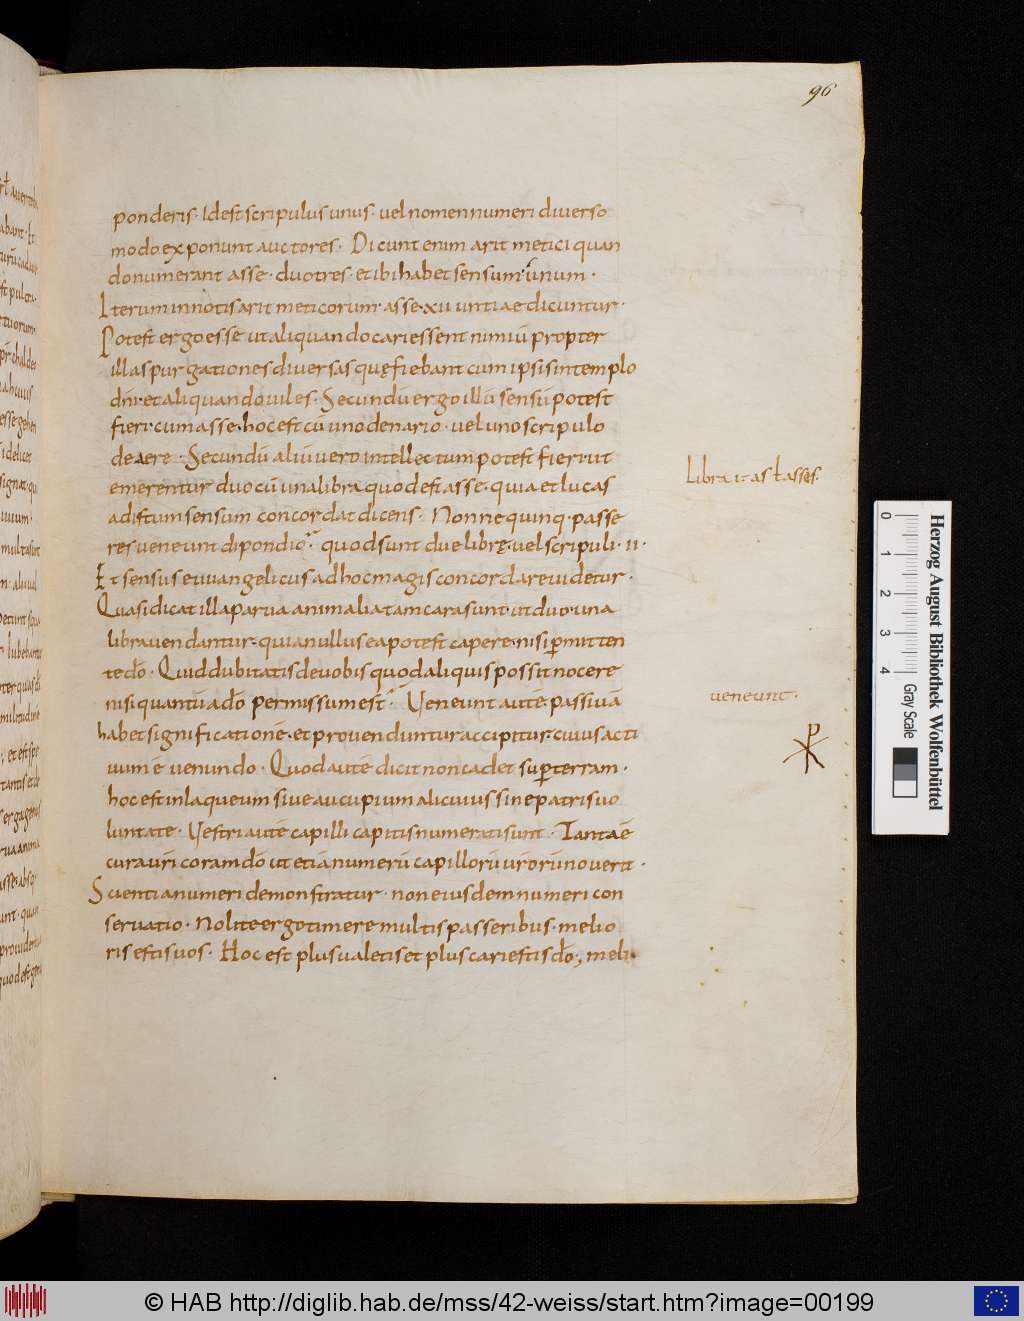 96
ponderis· Idest scripulus unus· uel nomen numeri diuerso
modo exponunt auctores· Dicunt enim aritmetici quan
do numerant asse· duo tres· et ibi habet sensum unum·
Iterum in notis aritmeticorum asse·xii untiae dicuntur·
Potest ergo esse ut aliquando cariessent nimiū propter
illas purgationes diuersas quę fiebant cum ipsis in templo
dn̄i· et aliquando uiles· Secundū ergo illū sensū potest
fieri· cum asse· hoc est cū uno denario· uel uno scripulo
de aere· Secundū aliū uero intellectum potest fieri· ut
emerentur duo cū una libra quod est asse· quia et lucas
ad istum sensum concordat dicens· Nonne quinq· passe
res ueneunt dipondio· quod sunt due librę· uel scripuli· ii·
Et sensus euuangelicus ad hoc magis concordare uidetur·
Quasi dicat illa parua animalia tam cara sunt· ut duo una
libra uendantur· quia nullus ea potest capere· nisi p̄mitten
te dō· Quid dubitatis de uobis quod aliquis possit nocere
nisi quantū a dō permissum est· Ueneunt autē passiuā
habet significationē· et pro uenduntur accipitur· cuius acti
uum ē uenundo· Quod autē dicit non cadet sup̄ terram·
hoc est in laqueum siue aucupium alicuius sine patris uo
luntate· Uestri autē capilli capitis numerati sunt· Tanta ē
cura ur̄i coram dō ut etiā numerū capillorū ur̄orū nouerit·
Scientia numeri demonstratur· non eiusdem numeri con
seruatio· Nolite ergo timere multis passeribus· melio
ris estis uos· Hoc est plus ualetis et plus cari estis dō·, meli
Libra i· as ł asses·
ueneunt·
0 1 2 3 4
Gray Scale
Herzog August Bibliothek Wolfenbüttel
© HAB http://diglib.hab.de/mss/42-weiss/start.htm?image=00199